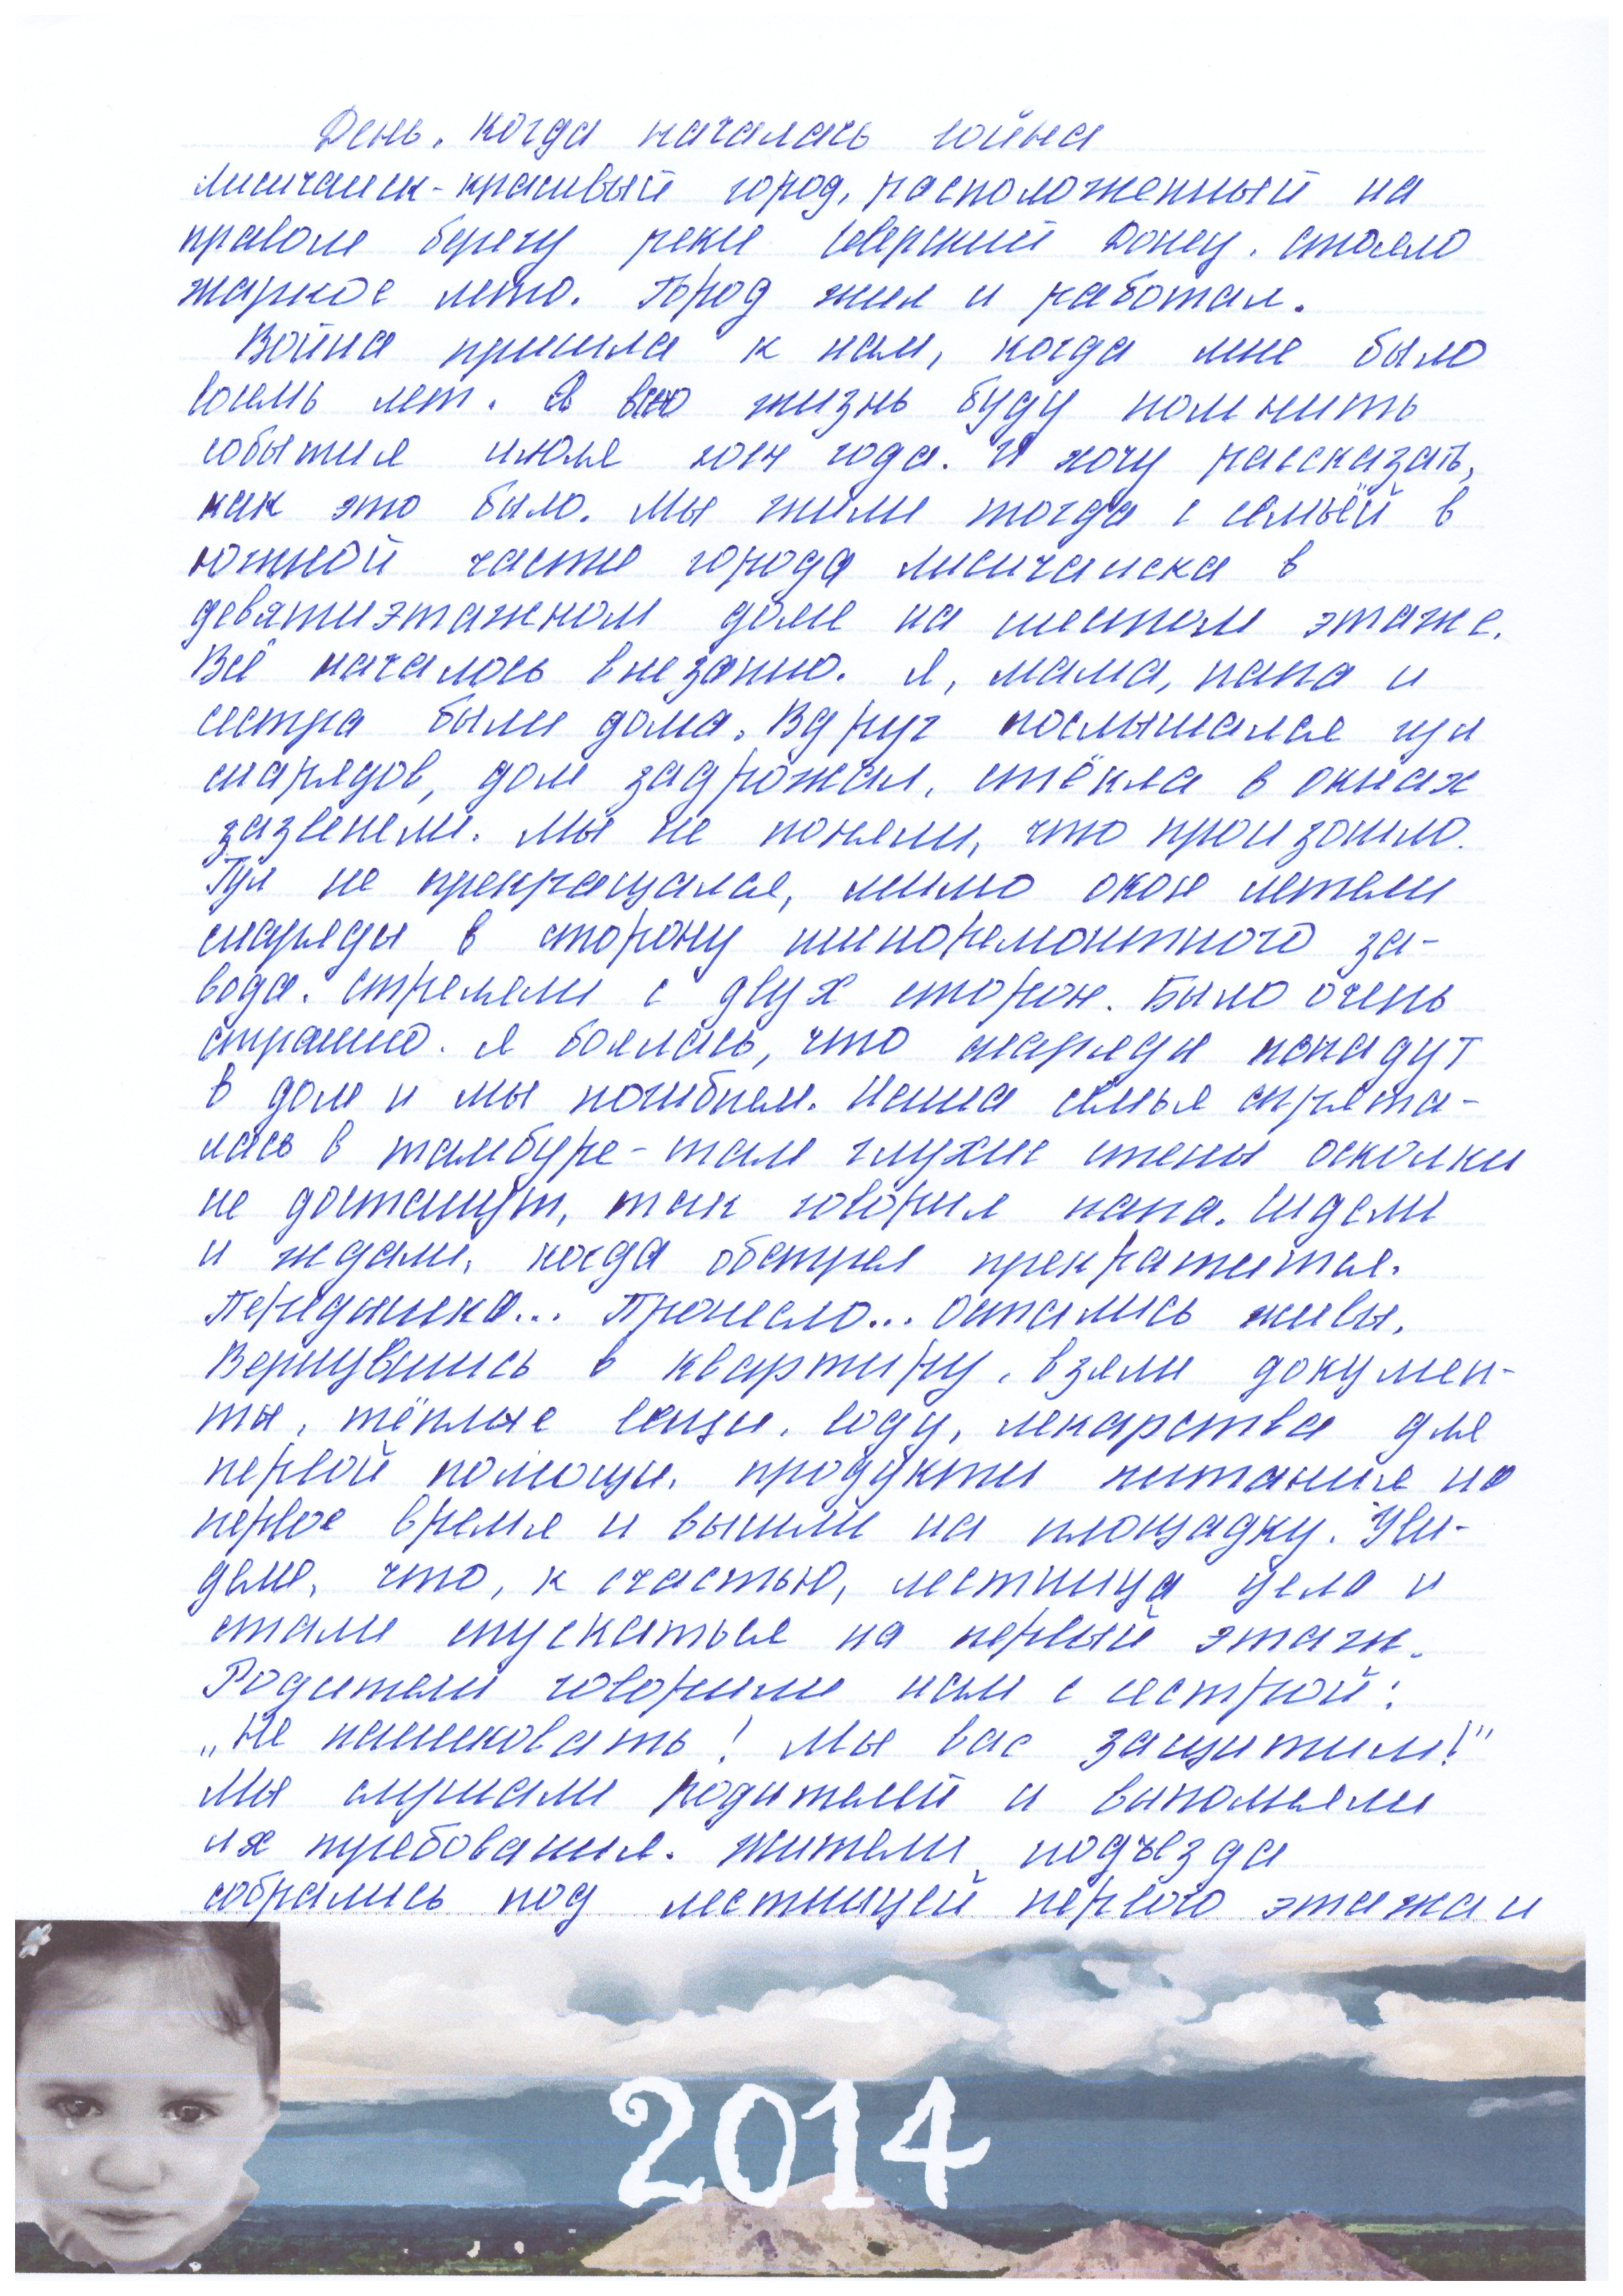 День, когда началась война
Лисичанск - красивый город, расположенный на
правом берегу реки Северский Донец. Стояло
жаркое лето. Город жил и работал.
Война пришла к нам, когда мне было
восемь лет. Я всю жизнь буду помнить
события июля 2014 года. И хочу рассказать,
как это было. Мы жили тогда с семьёй в
южной части города Лисичанска в
девятиэтажном доме на шестом этаже.
Всё началось внезапно. Я, мама, папа и
сестра были дома. Вдруг послышался гул
снарядов, дом задрожал, стёкла в окнах
зазвенели. Мы не поняли, что произошло.
Гул не прекращался, мимо окон летели
снаряды в сторону шиноремонтного за-
вода. Стреляли с двух сторон. Было очень
страшно. Я боялась, что снаряды попадут
в дом и мы погибнем. Наша семья спрята-
лась в тамбуре - там глухие стены осколки
не достанут, так говорил папа. Сидели
и ждали, когда обстрел прекратится.
Передышка... Пронесло... Остались живы.
Вернувшись в квартиру, взяли докумен-
ты, тёплые вещи, воду, лекарства для
первой помощи, продукты питания на
первое время и вышли на площадку. Уви-
дели, что, к счастью, лестница цела и
стали спускаться на первый этаж.
Родители говорили нам с сестрой:
„Не паниковать! Мы вас защитим!"
Мы слушали родителей и выполняли
их требования. Жители подъезда
собрались под лестницей первого этажа и
2014